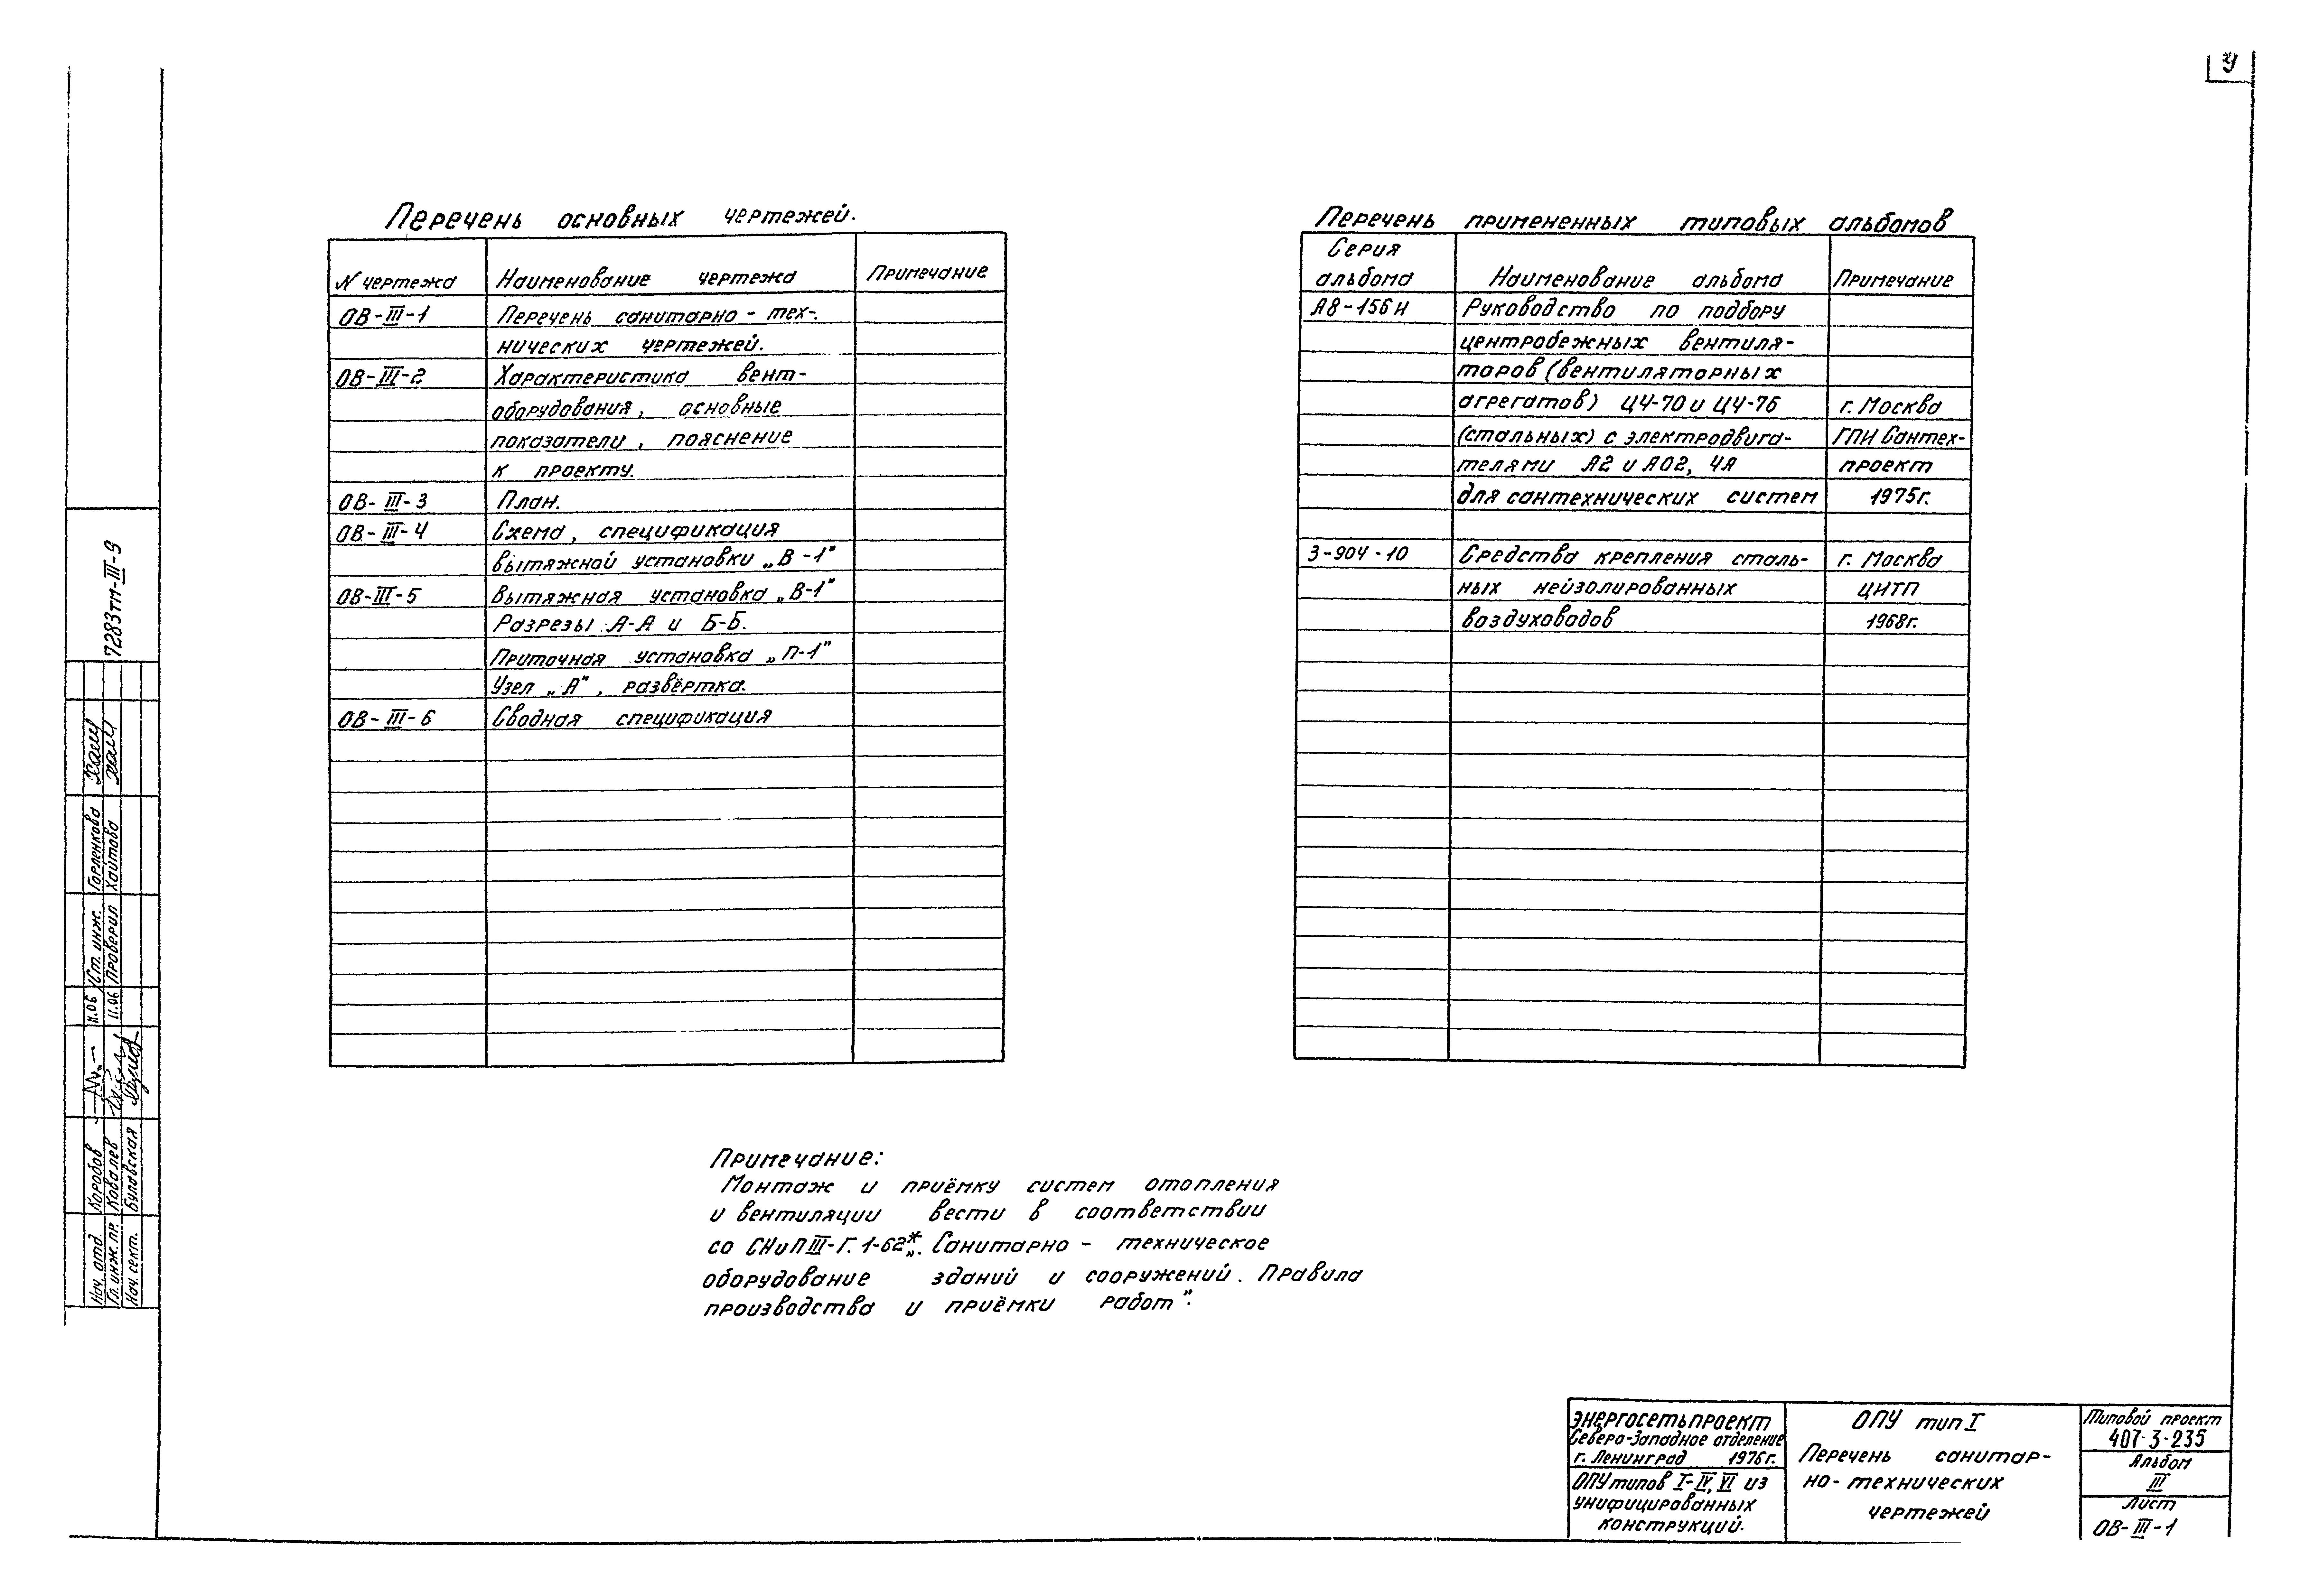 У
Перечень основных чертежей.
N чертежа Наименование чертежа Примечание
ОВ-III-1 Перечень санитарно - тех-
нических чертежей.
ОВ-III-2 Характеристика вент-
оборудования, основные
показатели, пояснение
к проекту.
ОВ-III-3 План.
ОВ-III-4 Схема, спецификация
вытяжной установки „В-1"
ОВ-III-5 Вытяжная установка „В-1"
Разрезы А-А и Б-Б.
Приточная установка „П-1"
Узел „А", развёртка.
ОВ-III-6 Сводная спецификация
Перечень примененных типовых альбомов
Серия
альбома Наименование альбома Примечание
А8-156 И Руководство по подбору
центробежных вентиля-
торов (вентиляторных
агрегатов) Ц4-70 и Ц4-76 г. Москва
(стальных) с электродвига- ГПИ Сантех-
телями А2 и АО2, 4А проект
для сантехнических систем 1975г.
3-904-10 Средства крепления сталь- г. Москва
ных неизолированных ЦИТП
воздуховодов 1968г.
Примечание:
Монтаж и приёмку систем отопления
и вентиляции вести в соответствии
со СНиП III-Г. 1-62*„. Санитарно - техническое
оборудование зданий и сооружений. Правила
производства и приёмки работ".
7283тм-III-9
Нач. отд. Коробов 11.06 Ст. инж. Горленкова
Гл. инж. пр. Ковалев 11.06 Проверил Хаитова
Нач. сект. Булавская
Энергосетьпроект
Северо-Западное отделение
г. Ленинград 1976г.
ОПУ типов I-IV, VI из
унифицированных
конструкций.
ОПУ тип I
Перечень санитар-
но-технических
чертежей
Типовой проект
407-3-235
Альбом
III
Лист
ОВ-III-1